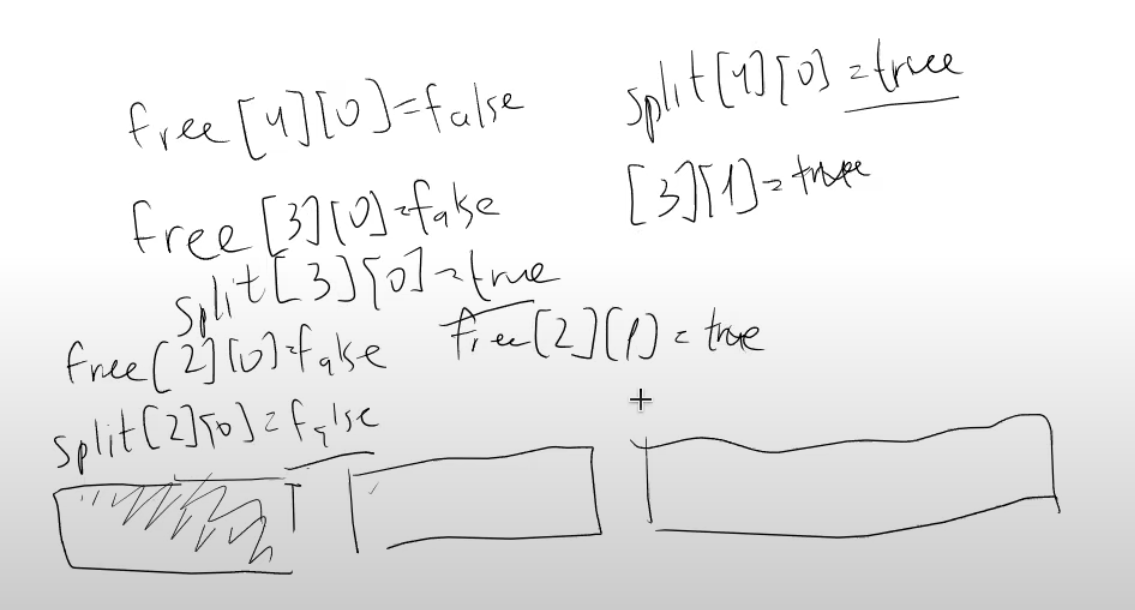 free[4][0]=false
split[4][0]=true
free[3][0]=false
[3][1]=true
split[3][0]=true
free[2][0]=false
free[2][1]=true
split[2][0]=false